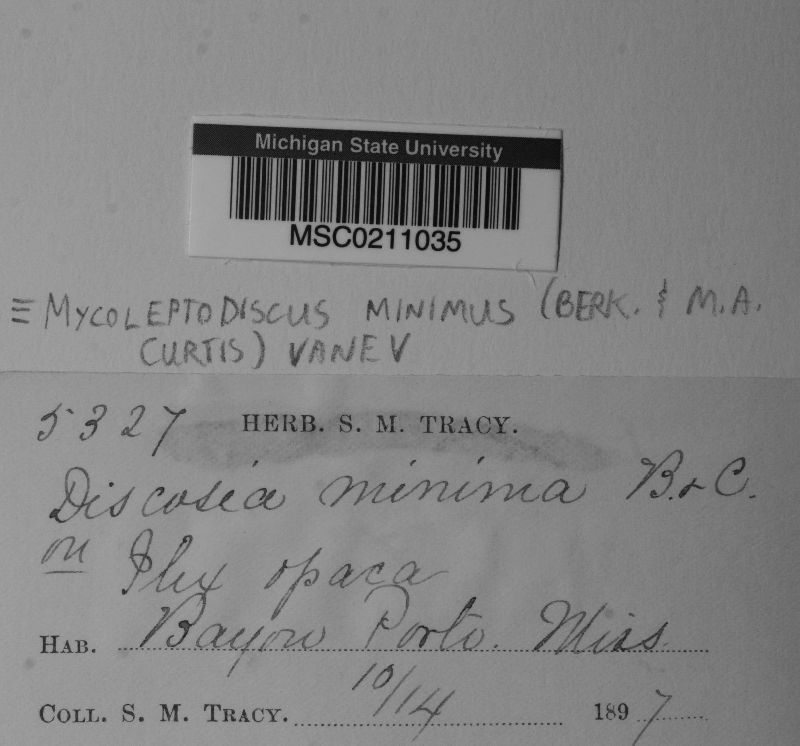 Michigan State University
MSC0211035
≡ MYCOLEPTODISCUS MINIMUS (BERK. & M.A.
CURTIS) VANEV
5327 HERB. S. M. TRACY.
Discosia minima B. & C.
on Ilex opaca
HAB. Bayou Porto. Miss.
10/14
COLL. S. M. TRACY. 1897